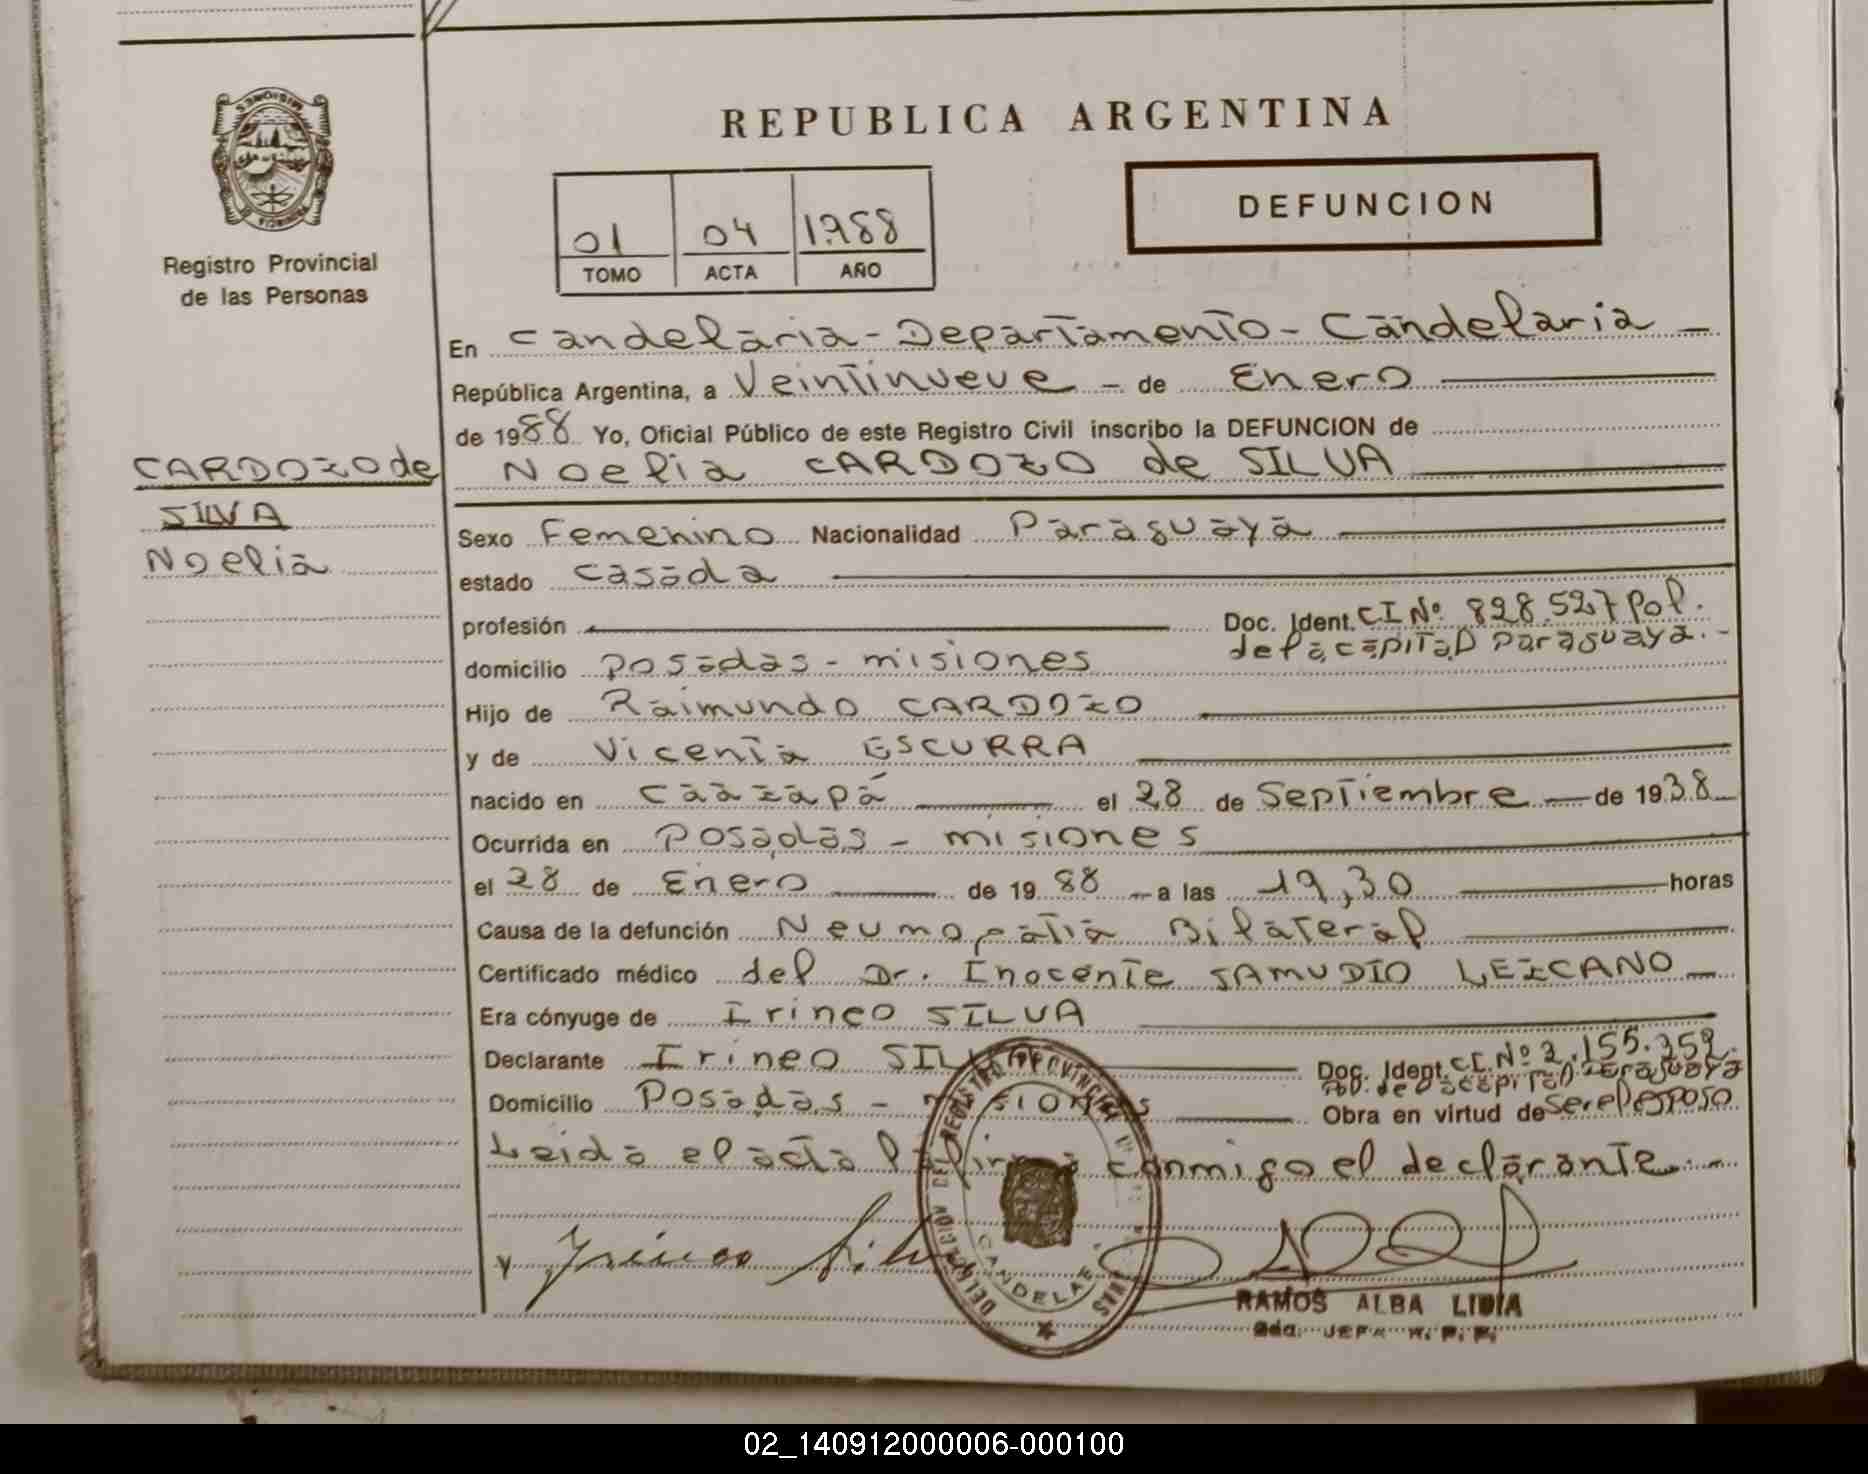 MISIONES
PROVINCIA DE
Registro Provincial
de las Personas
CARDOZO de
SILVA
Noelia
REPUBLICA ARGENTINA
01 04 1.988
TOMO ACTA AÑO
DEFUNCION
En Candelaria - Departamento - Candelaria -
República Argentina, a Veintinueve - de Enero
de 1988 Yo, Oficial Público de este Registro Civil inscribo la DEFUNCION de
Noelia CARDOZO de SILVA
Sexo Femenino Nacionalidad Paraguaya
estado casada
profesión Doc. Ident. C I Nº 828.527 Pol.
domicilio Posadas - misiones de la capital Paraguaya. -
Hijo de Raimundo CARDOZO
y de Vicenta ESCURRA
nacido en Caazapá el 28 de Septiembre - de 1938
Ocurrida en Posadas - misiones
el 28 de Enero de 1988 - a las 19,30 horas
Causa de la defunción Neumopatia Bilateral
Certificado médico del Dr. Inocente SAMUDIO LEZCANO -
Era cónyuge de Irineo SILVA
Declarante Irineo SILVA Doc. Ident. C I. Nº 2.155.359.
Pol. de la capital Paraguaya
Domicilio Posadas - misiones Obra en virtud de ser el esposo
Leida el acta la firma conmigo el declarante. -
Irineo Silva
DELEGACION DEL REGISTRO PROVINCIAL
CANDELARIA
RAMOS ALBA LIDIA
2da. JEFA R. P. P.
02_140912000006-000100